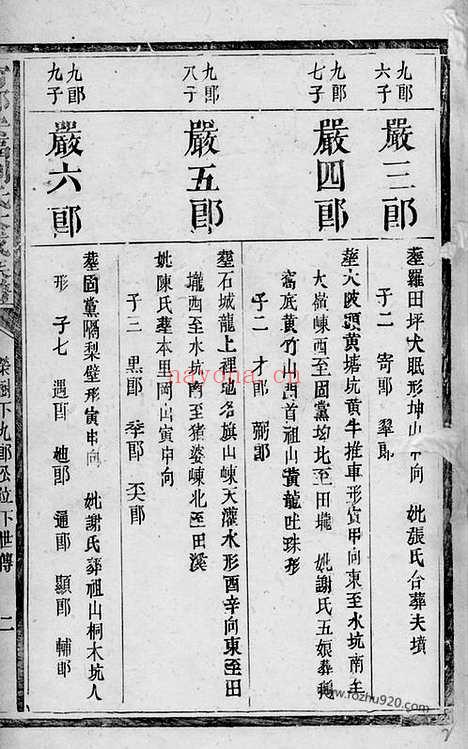 九郎
六子
嚴三郎
塟羅田坪犬眠形坤山 向 妣張氏合葬夫墳
子二 寄郎 翠郎
九郎
七子
嚴四郎
塟大陂頭黃塘坑黃牛推車形寅申向東至水坑南至
大嶺崠西至固黨 北至田壠 妣謝氏五娘葬
窩底黃竹山 首祖山黃龍吐珠形
子二 才郎 郎
九郎
八子
嚴五郎
塟石城龍上裡地名旗山崠天灌水形酉辛向東至田
壠西至水坑南至猪婆崠北至田溪
妣陳氏塟本里岡山寅申向
子三 黑郎 季郎 郎
九郎
九子
嚴六郎
塟固黨隔梨壁形寅申向 妣謝氏葬祖山桐木坑人
形 子七 遇郎 郎 通郎 顯郎 輔郎
下九郎公位下世傳 二
nayona.cn
www.fozhu920.com